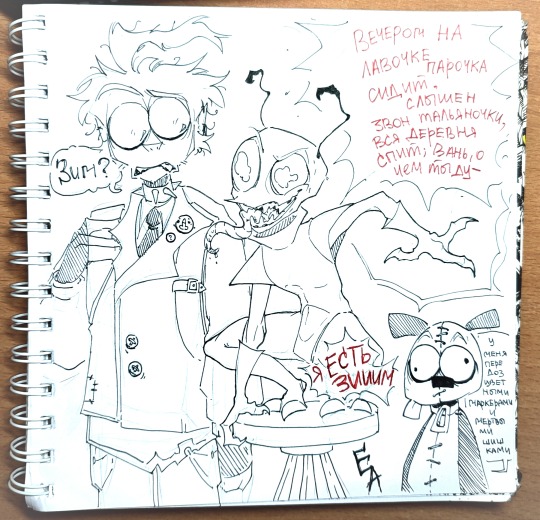 ВЕЧЕРОМ НА
ЛАВОЧКЕ ПАРОЧКА
СИДИТ.
СЛЫШЕН
ЗВОН ТАЛЬЯНОЧКИ,
ВСЯ ДЕРЕВНЯ
СПИТ; ВАНЬ, О
ЧЕМ ТЫ ДУ—
ЗИМ?
Я ЕСТЬ
ЗИИИМ
У
МЕНЯ
ПЕРЕ
ДОЗ
ЦВЕТ
НЫМИ
МАРКЕРАМИ
И
МЕРТВЫ
МИ
ШИШ
КАМИ
EA